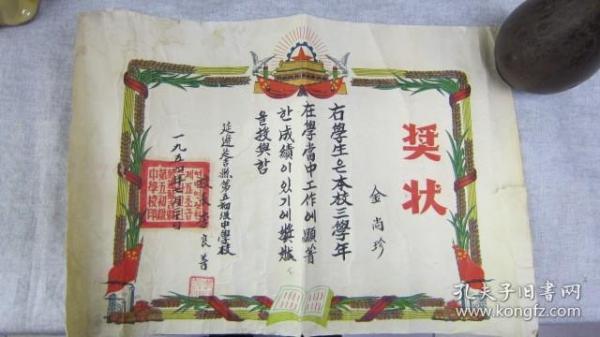 奬状
金尚珍
右學生은本校三學年
在學當中工作에顯著
한成績이있기에奬狀
을授與함
延邊 縣第五初級中學校
校長李良善
一九五 年七月 日
第五初級
中學校印
孔夫子旧书网
kongfz.com